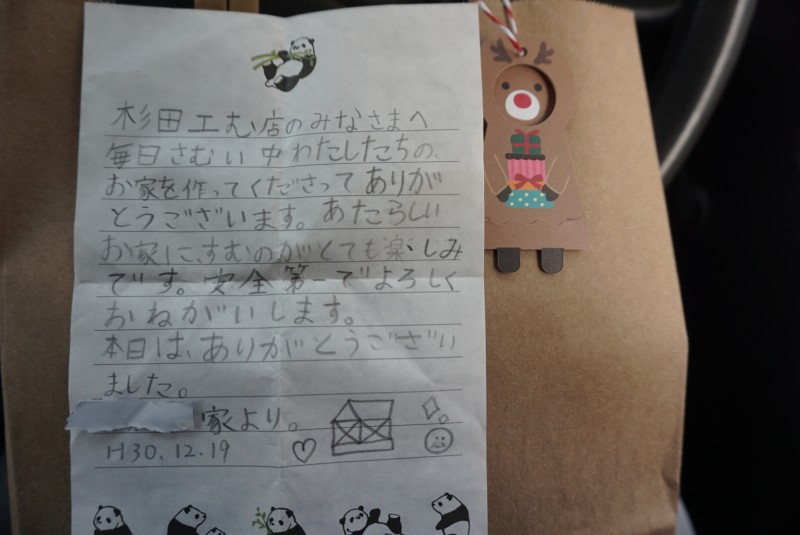 杉田工む店のみなさまへ
毎日さむい中わたしたちの、
お家を作ってくださってありが
とうございます。あたらしい
お家に、すむのがとても楽しみ
です。安全第一でよろしく
おねがいします。
本日は、ありがとうござい
ました。
家より。
H30.12.19